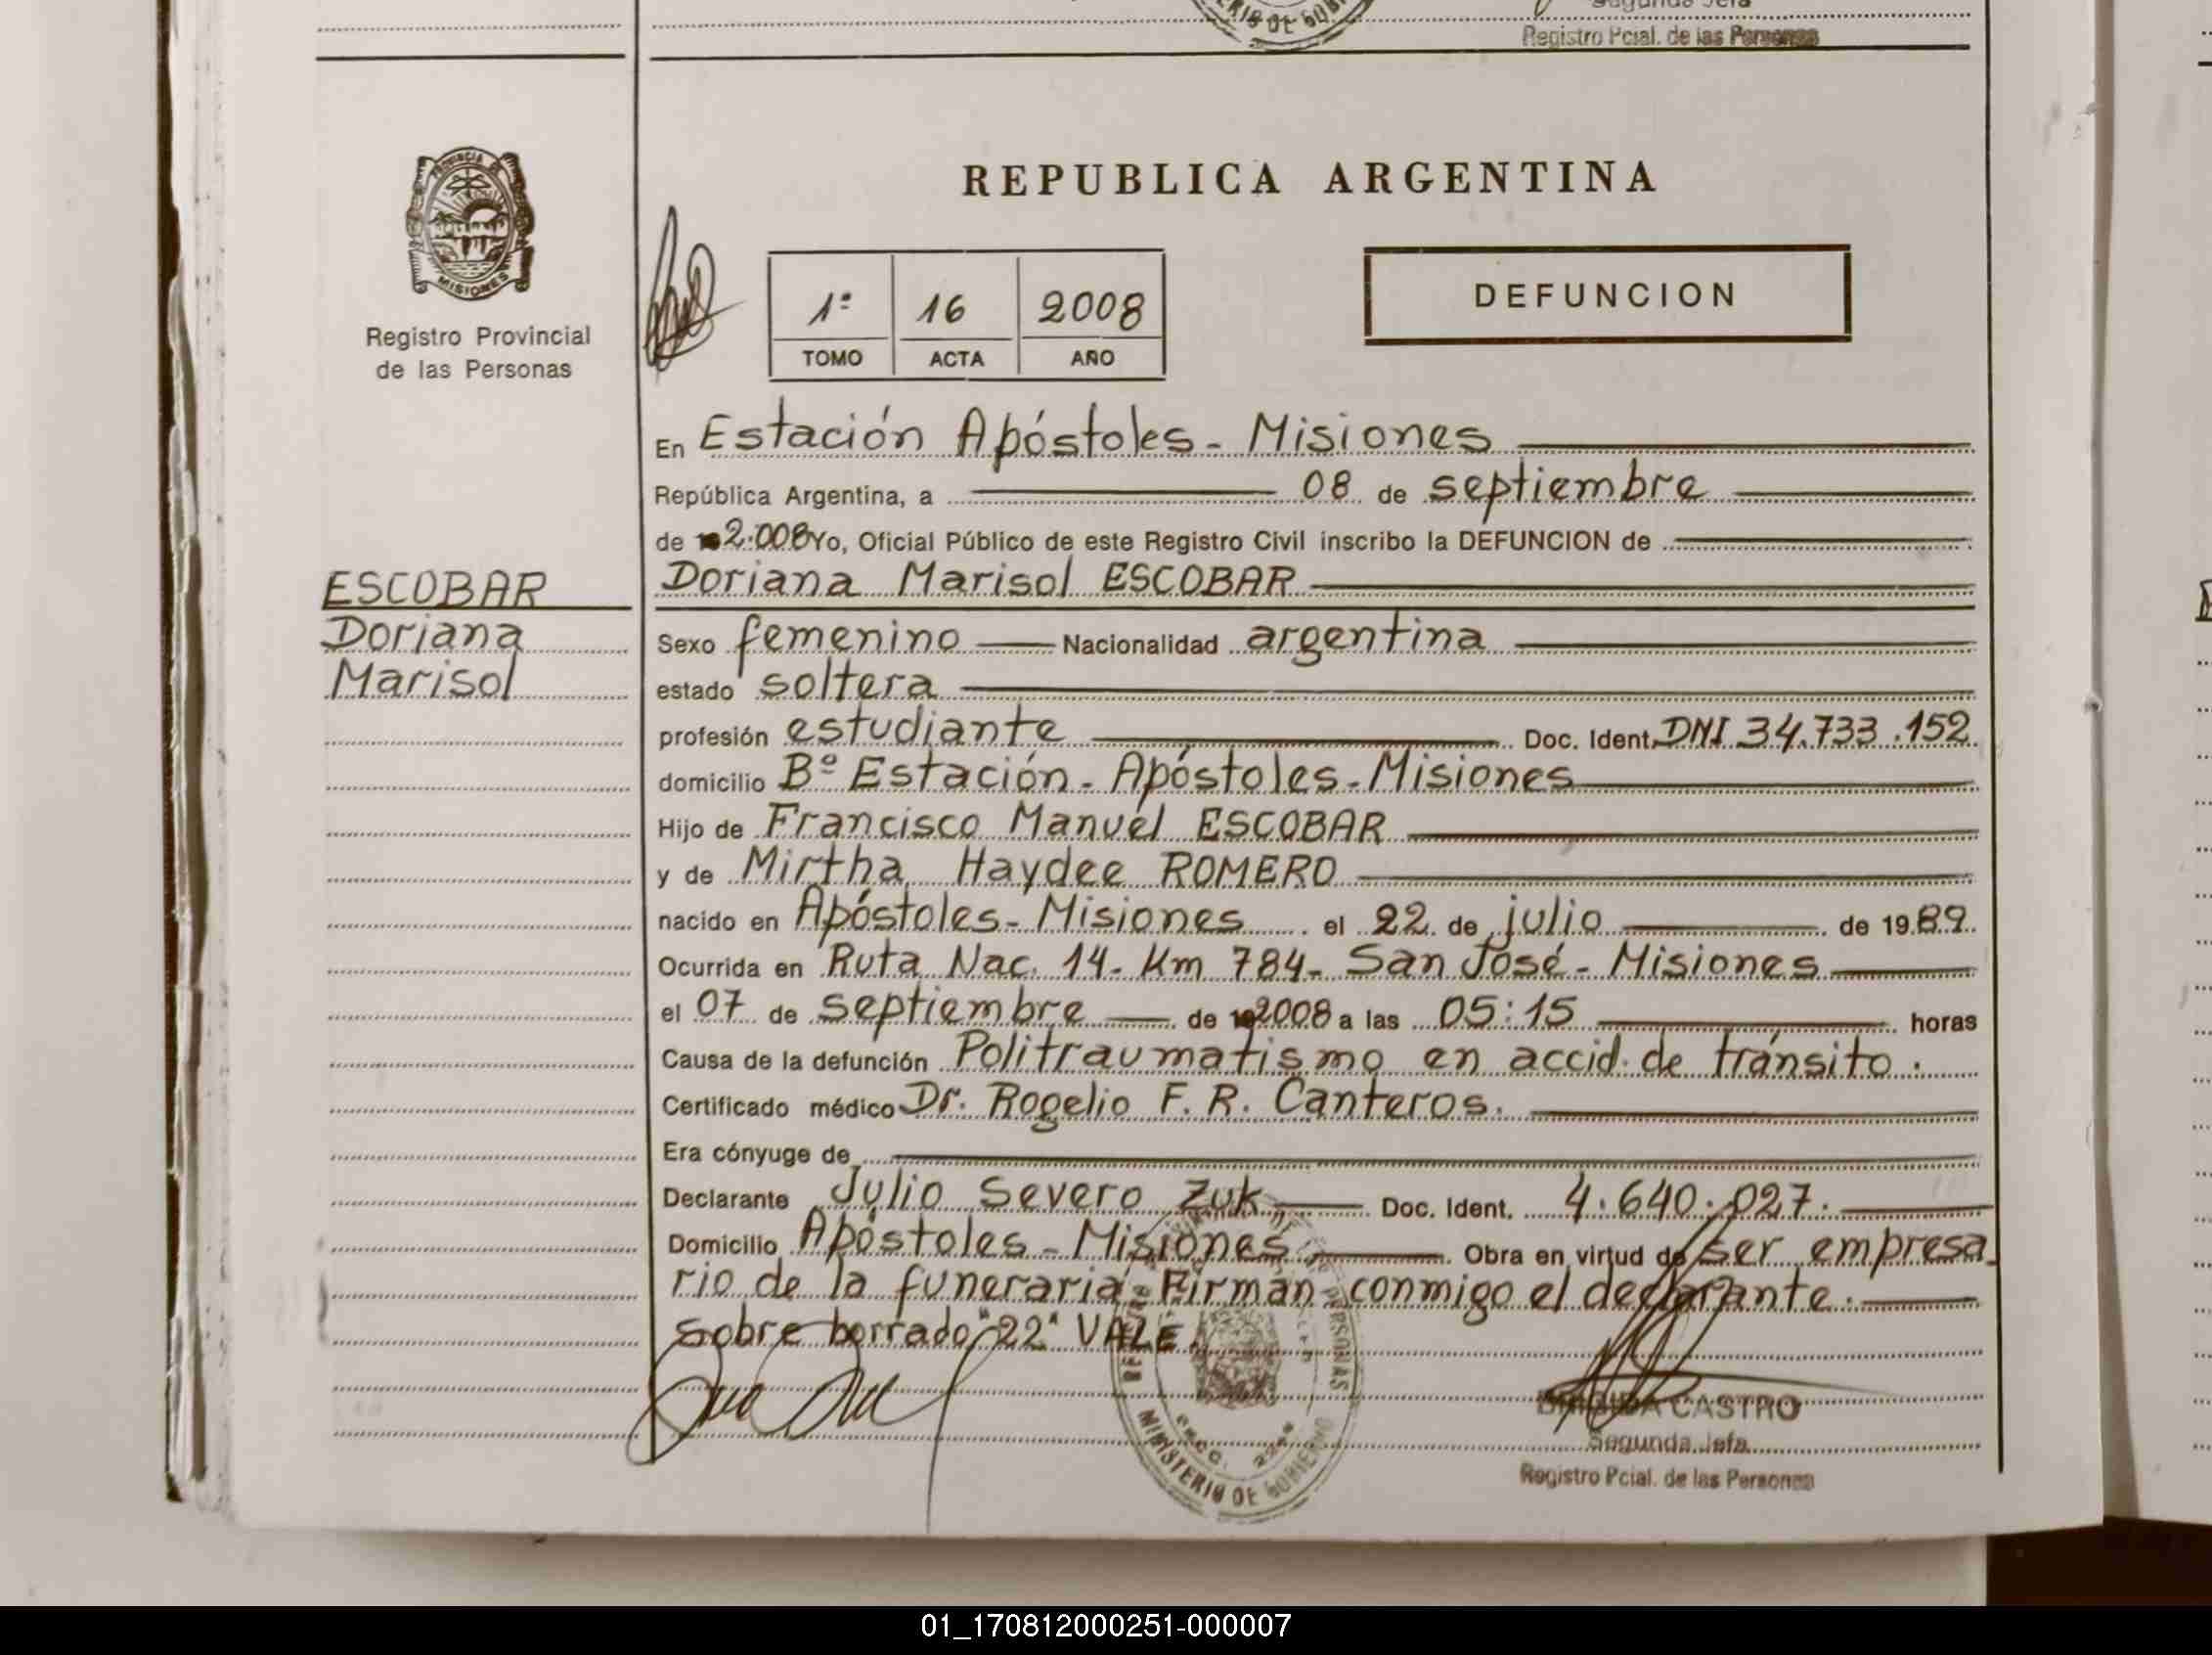 Registro Pcial. de las Personas
PROVINCIA DE
MISIONES
Registro Provincial
de las Personas
REPUBLICA ARGENTINA
1º 16 2008
TOMO ACTA AÑO
DEFUNCION
En Estación Apóstoles - Misiones
República Argentina, a 08 de septiembre
de 2.008 Yo, Oficial Público de este Registro Civil inscribo la DEFUNCION de
ESCOBAR
Doriana
Marisol
Doriana Marisol ESCOBAR
Sexo femenino Nacionalidad argentina
estado soltera
profesión estudiante Doc. Ident. DNI 34.733.152
domicilio Bº Estación - Apóstoles - Misiones
Hijo de Francisco Manuel ESCOBAR
y de Mirtha Haydee ROMERO
nacido en Apóstoles - Misiones el 22 de julio de 1989
Ocurrida en Ruta Nac. 14 - Km 784 - San José - Misiones
el 07 de septiembre de 2008 a las 05:15 horas
Causa de la defunción Politraumatismo en accid. de tránsito.
Certificado médico Dr. Rogelio F. R. Canteros.
Era cónyuge de
Declarante Julio Severo Zuk Doc. Ident. 4.640.027.
Domicilio Apóstoles - Misiones Obra en virtud de ser empresa
rio de la funeraria - Firman conmigo el declarante.
Sobre borrado "22" VALE.
CASTRO
Segunda Jefa
Registro Pcial. de las Personas
MINISTERIO DE GOBIERNO
01_170812000251-000007